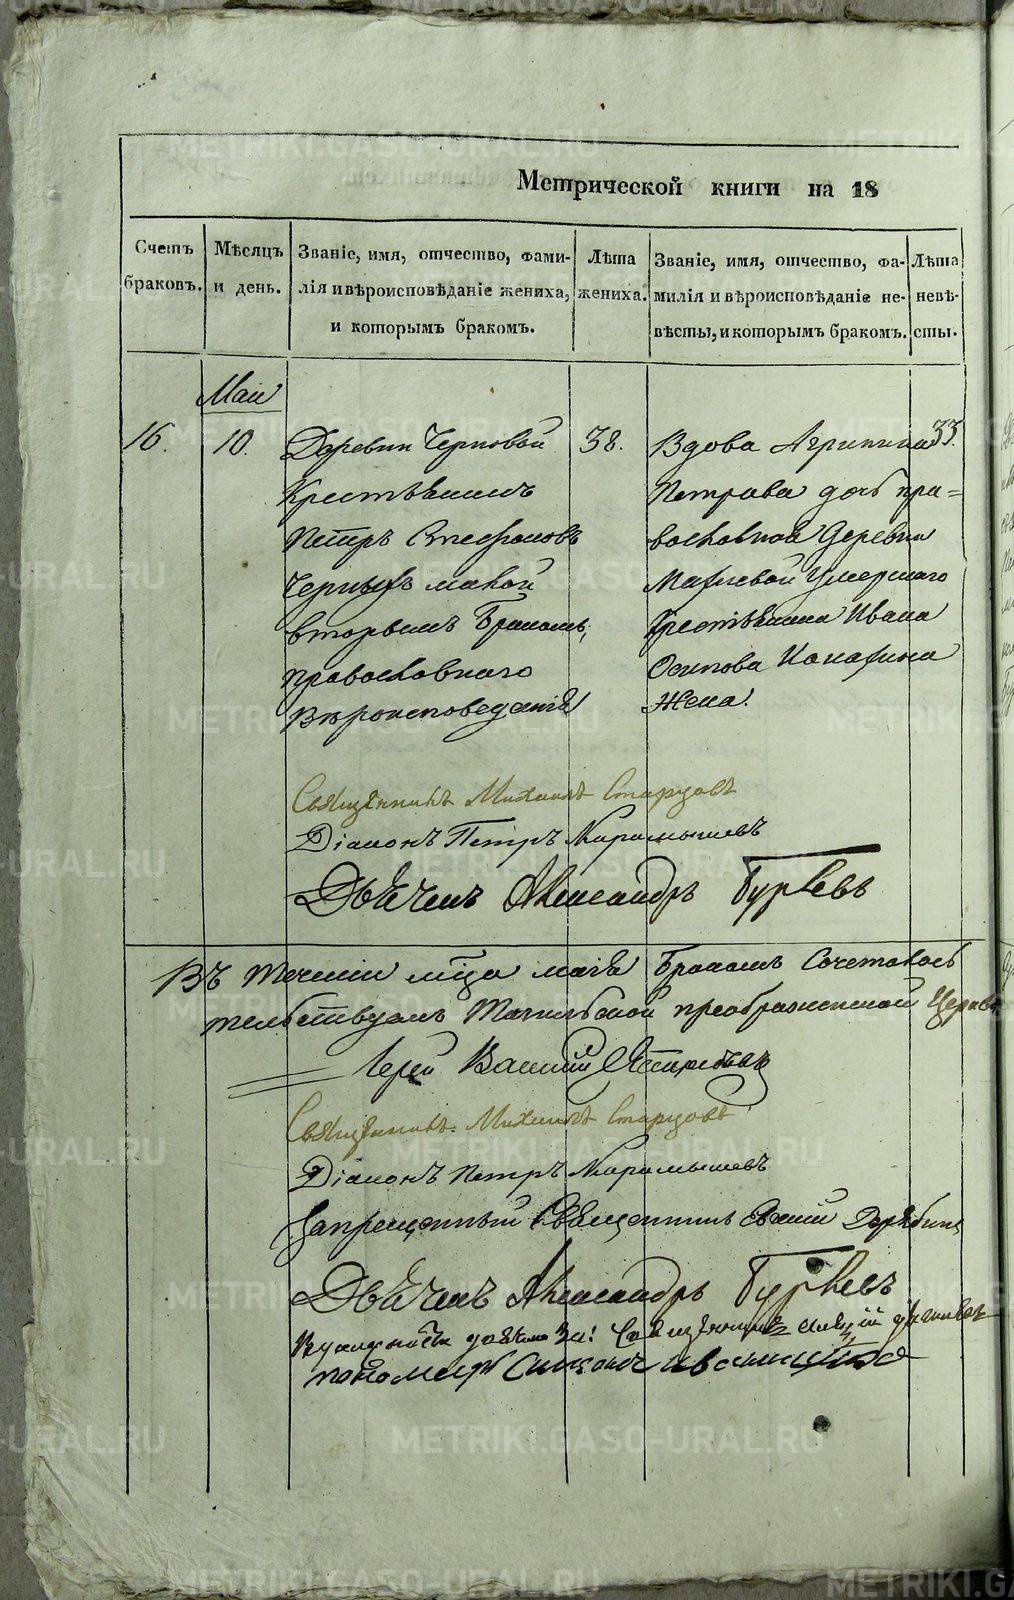 Метрической книги на 18
Счетъ браковъ.
Мѣсяцъ и день.
Званіе, имя, отчество, фами-
лія и вѣроисповѣданіе жениха,
и которымъ бракомъ.
Лѣта
жениха.
Званіе, имя, отчество, фа-
милія и вѣроисповѣданіе не-
вѣсты, и которымъ бракомъ.
Лѣта
невѣ-
сты.
Маи
16.
10.
Деревни Черновой
Крестьянинъ
Петръ Стефановъ
Черныхъ
вторымъ бракомъ,
православнаго
Вѣроисповеданія
38.
Вдова Агрипина
Петрова дочь пра=
вославной деревни
умершаго
крестьянина Ивана
Осипова
жена.
33.
Священникъ Михаилъ Старцовъ
Діаконъ Петръ Карамышевъ
Дьячекъ Александръ Гурьевъ
Въ Течении мца маія браком сочетавось
Преображенской Церкви
Іерей Василий
Священникъ Михаилъ Старцовъ
Діаконъ Петръ Карамышевъ
Запрещенный Священникъ Дерябинъ
Дьячекъ Александръ Гурьевъ
пономарь
METRIKI.GASO-URAL.RU